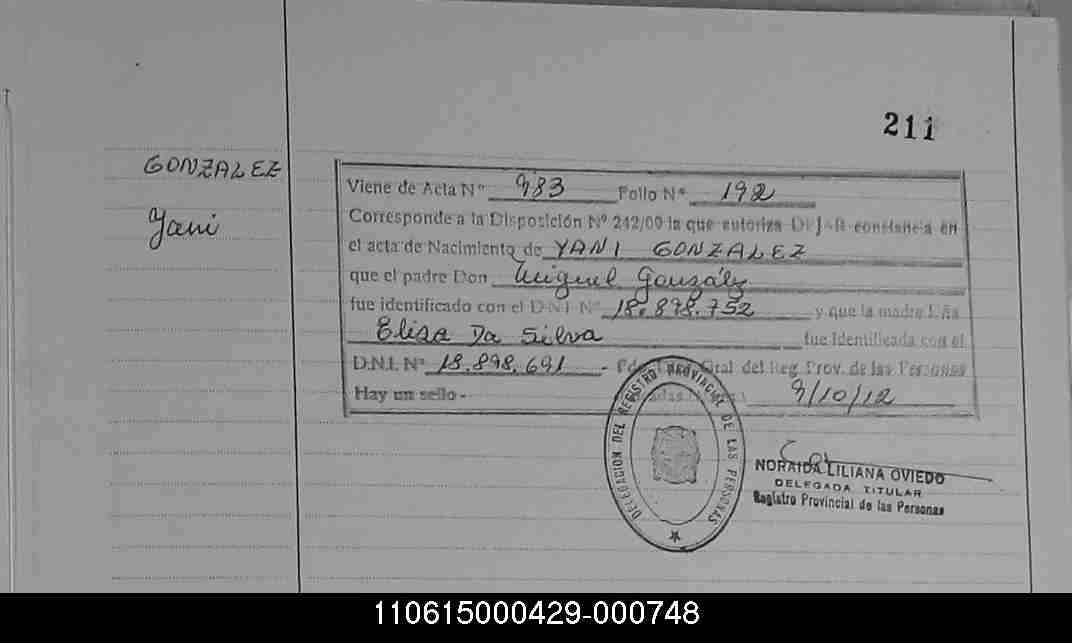 211
GONZALEZ
Yani
Viene de Acta Nº 983 Folio Nº 192
Corresponde a la Disposición Nº 242/00 la que autoriza DEJAR constancia en
el acta de Nacimiento de YANI GONZALEZ
que el padre Don Miguel González
fue identificado con el D.N.I. Nº 18.898.752 y que la madre Dña
Elisa Da Silva fue Identificada con el
D.N.I. Nº 18.898.691 - Gral del Reg. Prov. de las Personas
Hay un sello - 9/10/12
DELEGACION DEL REGISTRO PROVINCIAL DE LAS PERSONAS
NORAIDA LILIANA OVIEDO
DELEGADA TITULAR
Registro Provincial de las Personas
110615000429-000748